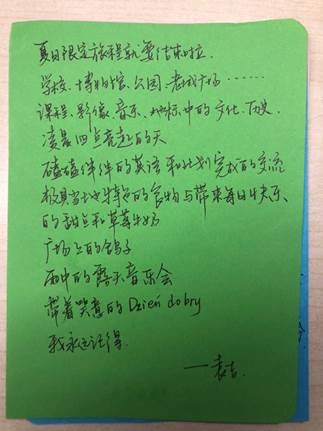 夏日限定旅程就要结束啦.
学校、博物馆、公园、老城广场……
课程、影像、音乐、地标中的文化、历史
凌晨四点亮起的天
磕磕绊绊的英语和比划完成的交流
极具当地特色的食物与带来每日快乐
的甜点和草莓牛奶
广场上的鸽子
雨中的露天音乐会
带着笑意的 Dzień dobry
我永远记得.